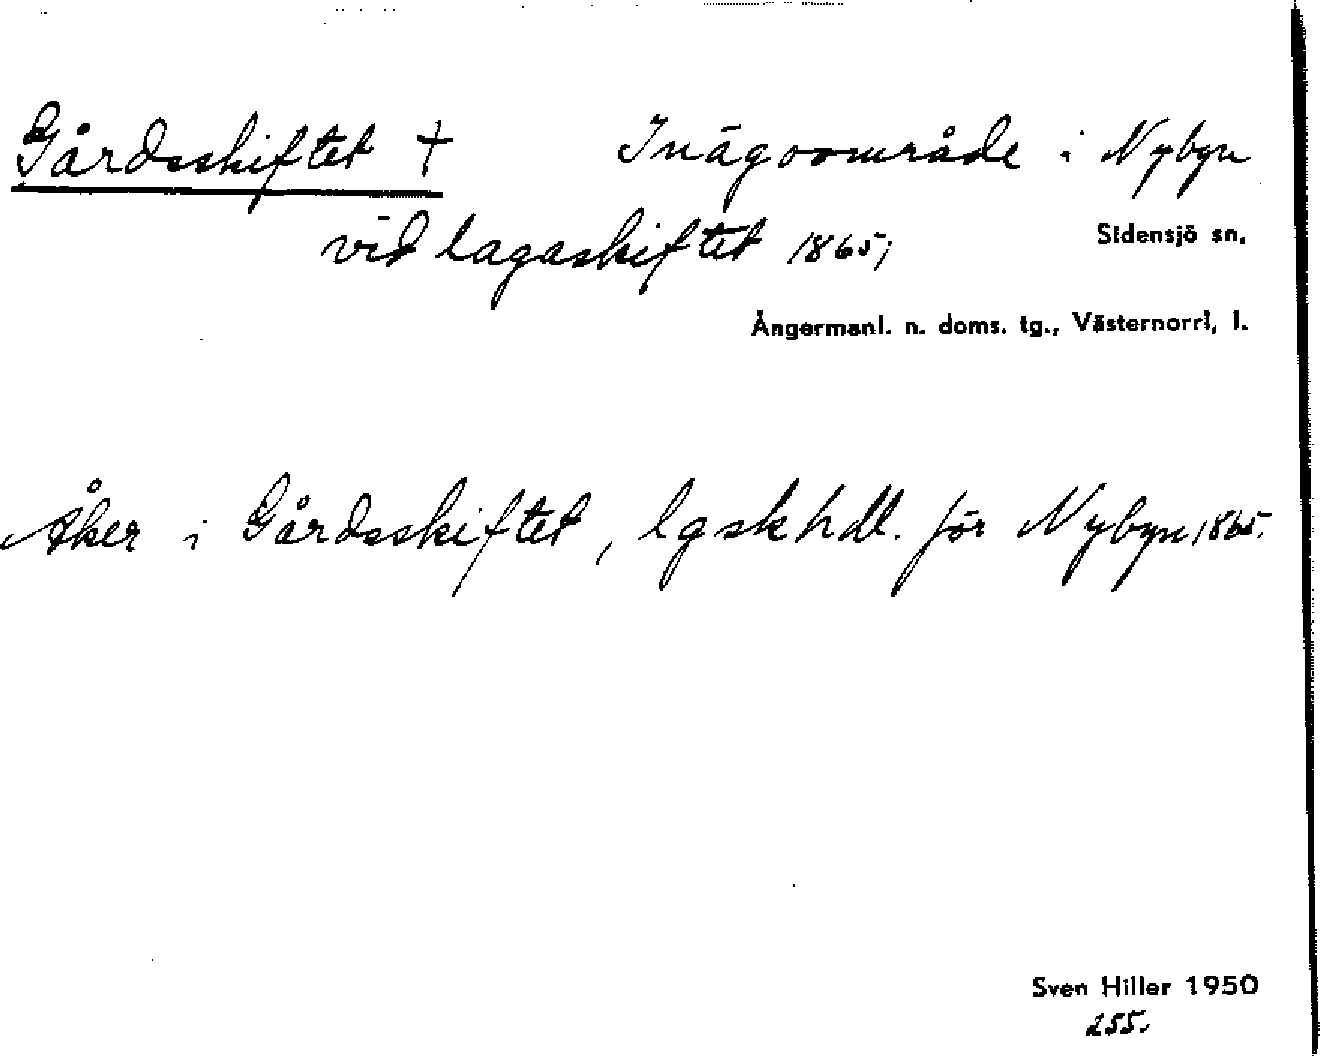 Gårdsskiftet † Inägoområde i Nybyn
vid lagaskiftet 1865;
Sidensjö sn.
Ångermanl. n. doms. tg., Västernorrl. l.
Åker i Gårdsskiftet, lgskhdl. för Nybyn 1865.
Sven Hiller 1950
255.